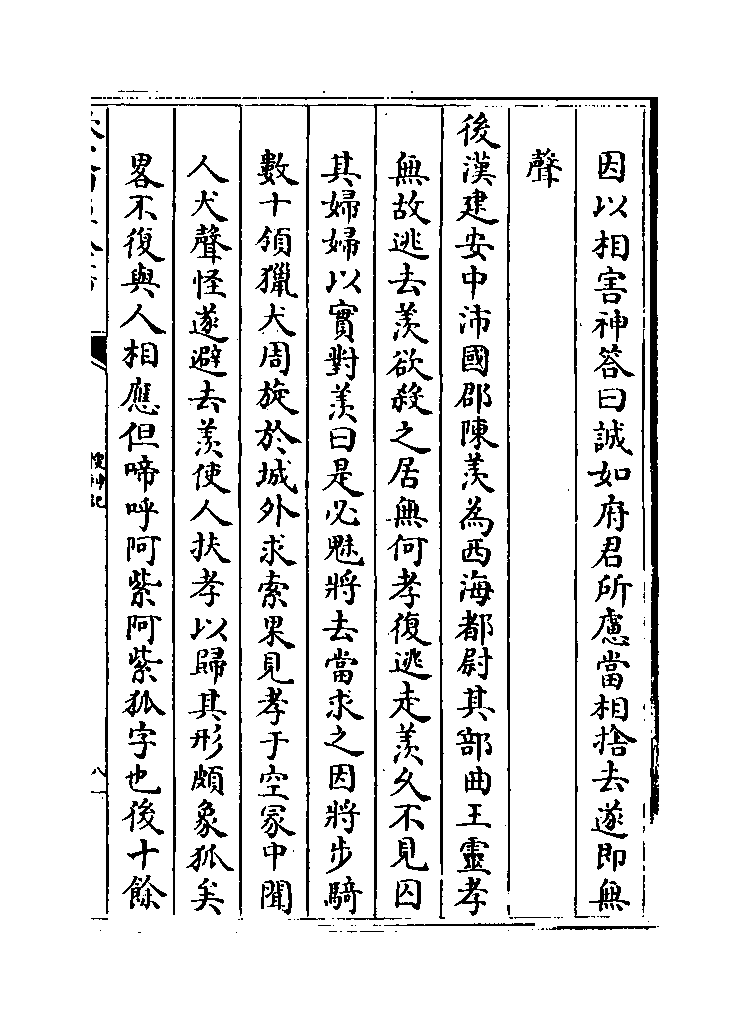 因以相害神答曰誠如府君所慮當相捨去遂即無
聲
後漢建安中沛國郡陳羨為西海都尉其部曲王靈孝
無故逃去羨欲殺之居無何孝復逃走羨久不見囚
其婦婦以實對羨曰是必魅將去當求之因將步騎
數十領獵犬周旋於城外求索果見孝于空冢中聞
人犬聲怪遂避去羨使人扶孝以歸其形頗象狐矣
畧不復與人相應但啼呼阿紫阿紫狐字也後十餘
搜神記
八